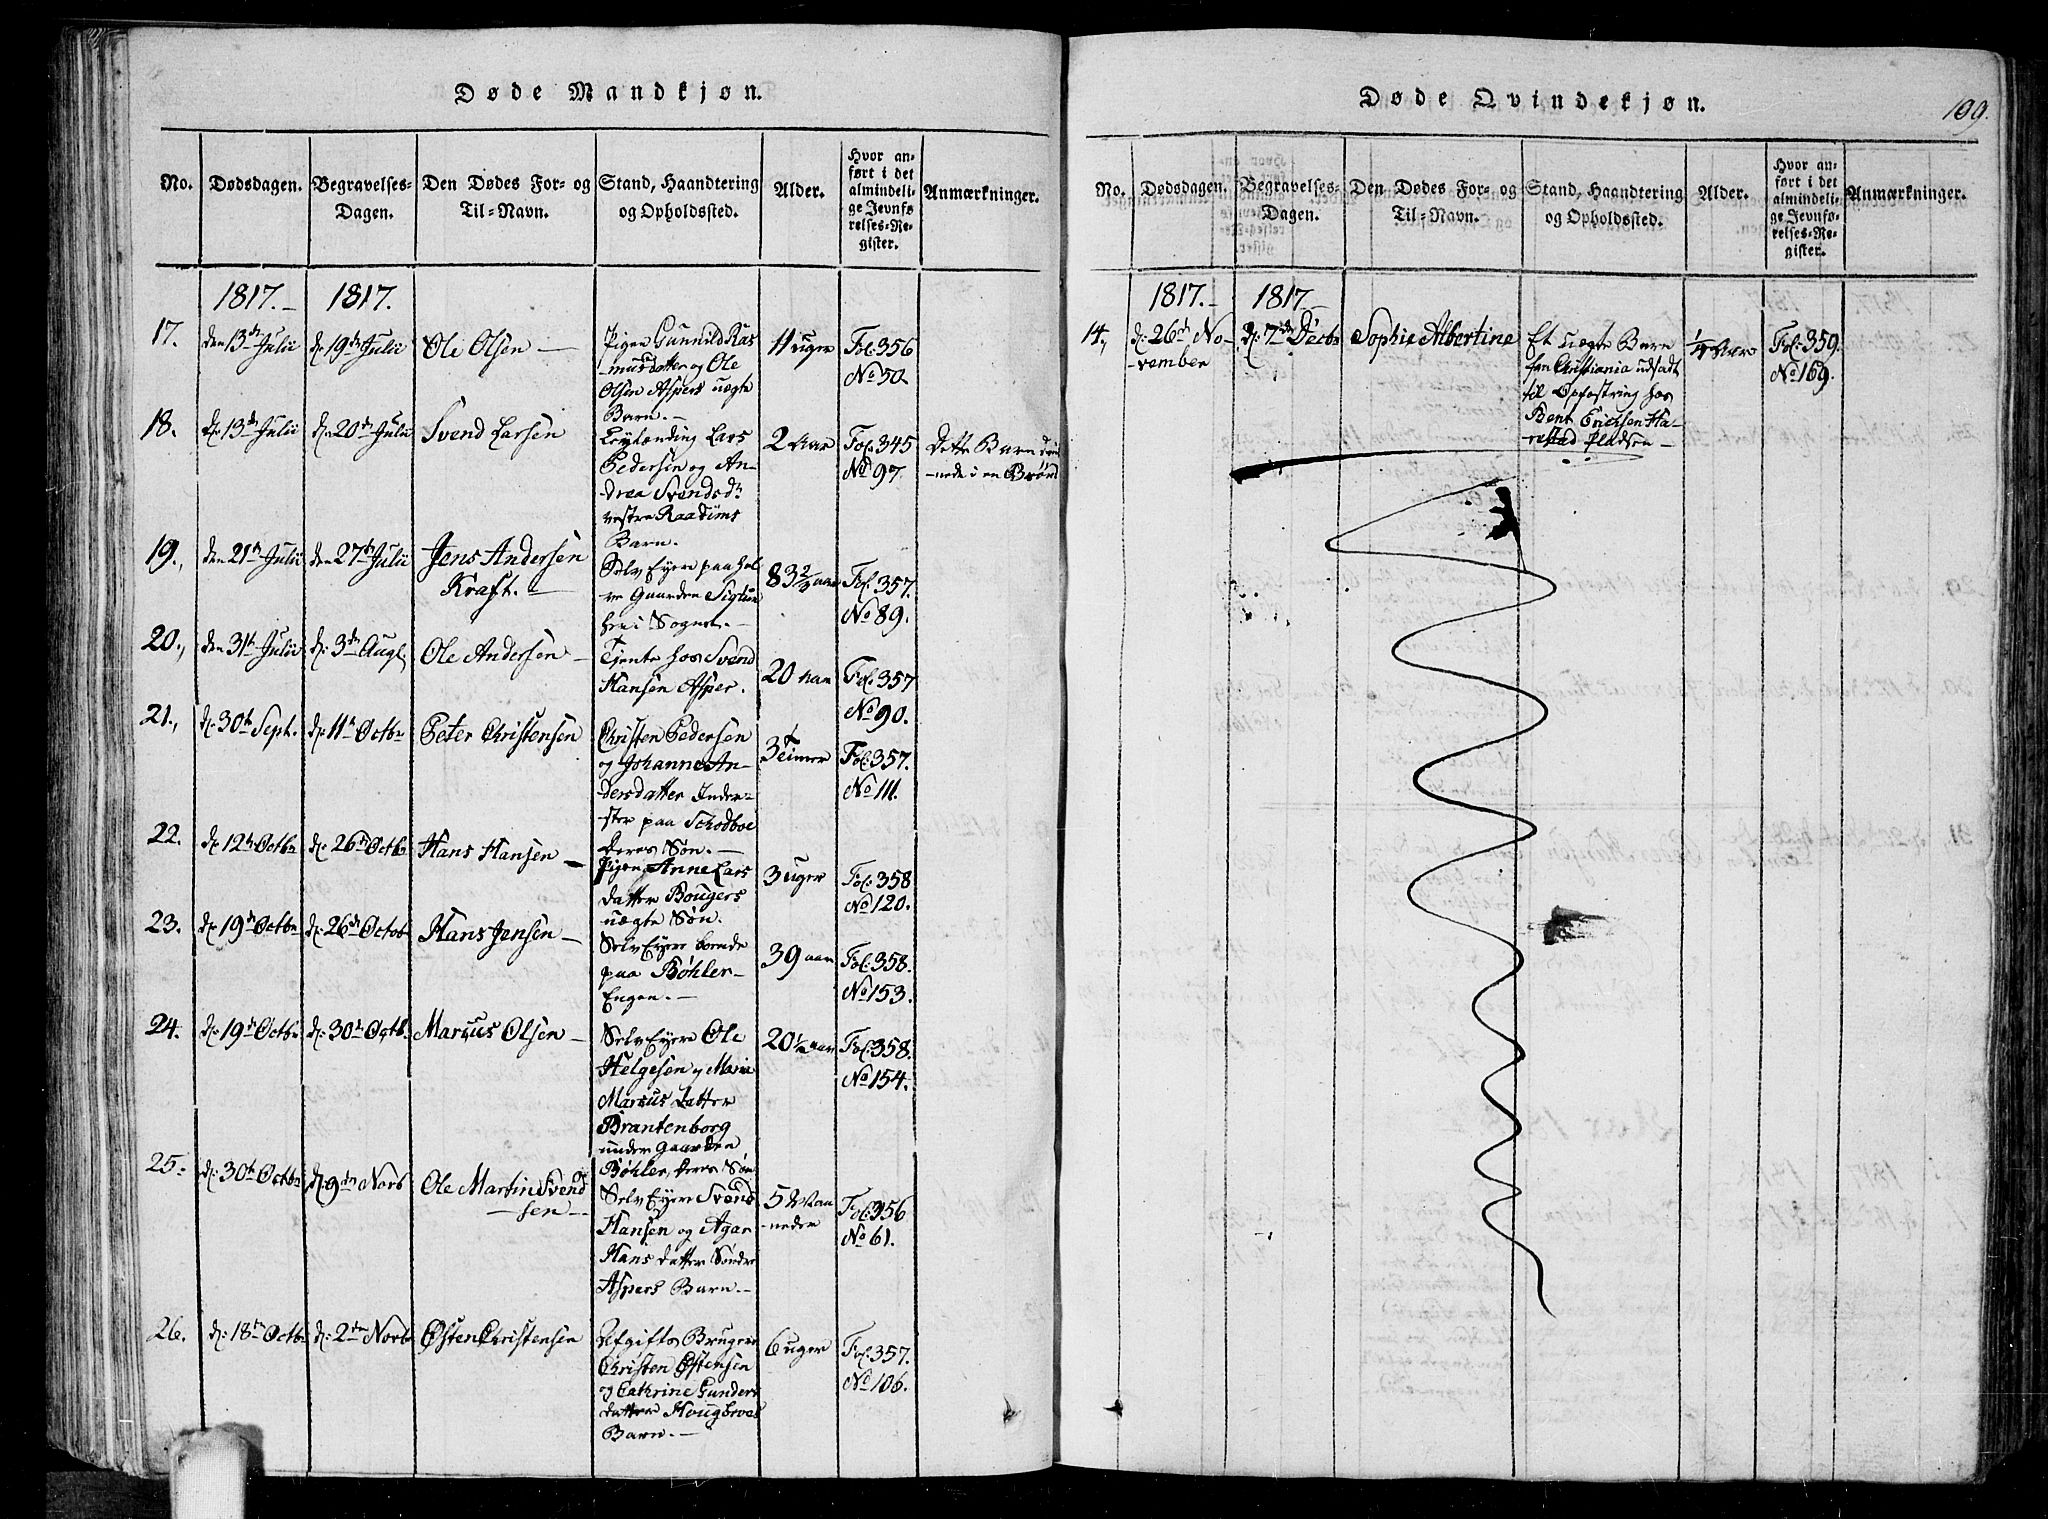 Døde Mandkjøn.
No.
Dødsdagen.
Begravelses-
Dagen.
Den Dødes For- og
Til-Navn.
Stand, Haandtering
og Opholdssted.
Alder.
Hvor an-
ført i det
almindeli-
ge Jevnfø
relses-Re-
gister.
Anmærkninger.
1817.-
1817.
17.
den 13de Julii
d: 19de Julii
Ole Olsen —
Pigen Gunnild Ras
musdatter og Ole
Olsen Aspers uægte
Barn.-
11 uger
Fol: 356
No 50.
18.
d: 13de Julii
d: 20de Julii
Svend Larsen
Leylænding Lars
Pedersen og An-
drea Svendsd:
vestre Raadims
Barn.
2 Aar
Fol: 345
No 97.
Dette Barn
nede i en Brønd
19.,
den 21de Julii
den 27de Julii
Jens Andersen
Kraft. —
Selv Eyere paa hal
ve Gaarden
i Sognet.-
83 2/3 aar
Fol: 357.
No 89.
20.,
den 31te Julii
d: 3de Augt
Ole Andersen —
Tjente hos Svend
Hansen Asper.
20 Aar
Fol: 357
No 90.
21.,
d: 30te Sept.
d: 11te Octbr
Peter Christensen
Christen Pedersen
og Johanne An-
dersdatter Inder-
ster paa Schodboe
Deres Søn.-
3 Timer
Fol: 357.
No 111.
22.
d: 12te Octbr
d: 26de Octbr
Hans Hansen —
Pigen Anne Lars
datter Bougers
uægte Søn.
3 uger
Fol: 358
No 120.
23.
d: 19de Octbr
d: 26de Octob
Hans Jensen —
Selv Eyere boende
paa Bøhler-
Engen.-
39 aar
Fol: 358.
No 153.
24.
d: 19de Octbr
d: 30te Octb.
Marcus Olsen —
Selv Eyere Ole
Helgesen og Maria
Marcus datter
Brantenborg
under Gaarden
Bøhler, Deres Søn
20 1/2 aar
Fol: 358.
No 154.
25.
d: 30te Octbr
d: 9de Novb
Ole Martin Svend
sen —
Selv Eyere Svend
Hansen og Agar
Hans datter Søndre
Aspers Barn.-
5 Maa
neder
Fol: 356
No 61.
26.
d: 18de Octb
d: 2den Novb
Østen Christensen
Afgifts Bruger
Christen Østensen
og Cathrine Gunders
datter Hougbroes
Barn.-
6 uger
Fol: 357.
No 106.
Døde Qvindekjøn.
199.
No.
Dødsdagen.
Begravelses-
Dagen.
Den Dødes For- og
Til-Navn.
Stand, Haandtering
og Opholdssted.
Alder.
Hvor an-
ført i det
almindeli-
ge Jevnfø-
relses-Re-
gister.
Anmærkninger.
1817.-
1817-
14.,
d: 26de No-
vember
d: 7de Decbr
Sophie Albertine
Et uægte Barn
fra Christiania udsadt
til Opfostring hos
Bent Erichsen Ha-
restad Pladsen —
1/4 Aar
Fol: 359.
No 169.